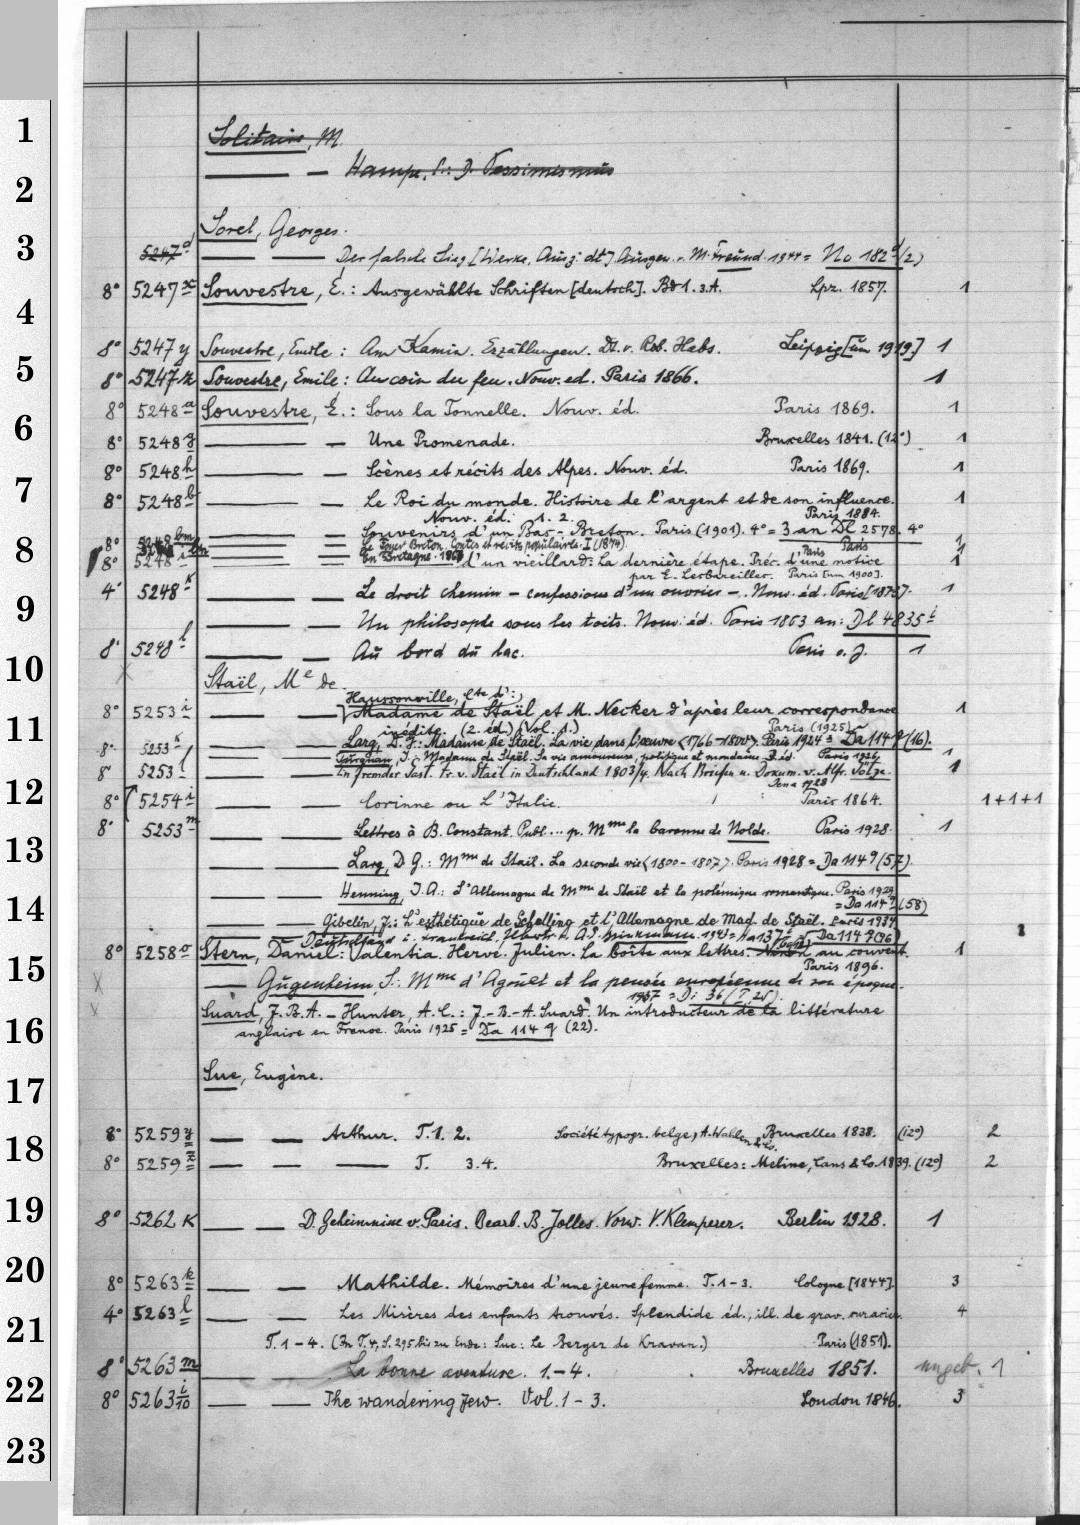 1
Solitaire, M.
2
Hampe, P.: D. Pessimismus
3
Sorel, Georges.
5247 d Der falsche Sieg [Werke, Ausz. dt.] Ausgew. v. M. Freund. 1944 = No 182 d/2)
8° 5247 x Souvestre, É.: Ausgewählte Schriften [deutsch]. Bd 1. 3. A. Lpz. 1857. 1
4
8° 5247 y Souvestre, Emile: Am Kamin. Erzählungen. Dt. v. Rob. Habs. Leipzig [um 1919] 1
5
8° 5247 z Souvestre, Emile: Au coin du feu. Nouv. ed. Paris 1866. 1
8° 5248 a Souvestre, É.: Sous la Tonnelle. Nouv. éd. Paris 1869. 1
6
8° 5248 g Une Promenade. Bruxelles 1841. (12°) 1
8° 5248 h Scènes et récits des Alpes. Nouv. éd. Paris 1869. 1
7
8° 5248 b Le Roi du monde. Histoire de l'argent et de son influence. 1
Nouv. éd. 1. 2. Paris 1884.
Souvenirs d'un Bas-Breton. Paris (1901). 4° = 3 an Dl 2578. 4°
8
8° 5248 bm Le Foyer Breton. Contes et récits populaires. I (1874). Paris 1
En Bretagne. Paris 1
8° 5248 d'un vieillard: La dernière étape. Préc. d'une notice 1
par E. Lesbareilles. Paris [um 1900].
4° 5248 k Le droit chemin – confessions d'un ouvrier –. Nouv. éd. Paris 1
9
Un philosophe sous les toits. Nouv. éd. Paris 1863 an: Dl 4835 i
8° 5248 l Au bord du lac. Paris o. J. 1
10
Staël, Me de
Haussonville, Cte d':
8° 5253 i Madame de Staël et M. Necker d'après leur correspondance 1
11
inédite. (2. éd.) (Vol. 1.) Paris (1925)
Larg, D. G.: Madame de Staël. La vie dans l'oeuvre <1766–1800>. Paris 1924 = Da 114 q (16).
8° 5253 k J.: Madame de Staël. Sa vie amoureuse, politique et mondaine. Paris 1926 1
8° 5253 l In fremder Gast. Fr. v. Staël in Deutschland 1803/4. Nach Briefen u. Dokum. v. Alfr. Götze. 1
Jena 1928
12
8° 5254 i Corinne ou l'Italie. Paris 1864. 1+1+1
8° 5253 m Lettres à B. Constant. Publ... p. Mme la baronne de Nolde. Paris 1928. 1
13
Larg, D. G.: Mme de Staël. La seconde vie <1800–1807>. Paris 1928 = Da 114 q (57).
Henning, I. A.: L'Allemagne de Mme de Staël et la polémique romantique. Paris 1929
14
= Da 114 q (58)
Gibelin, J.: L'esthétique de Schelling et l'Allemagne de Mad. de Staël. Paris 1934
= Da 114 q
8° 5258 o Stern, Daniel: Valentia. Hervé. Julien. La boîte aux lettres. Ninon au couvent. 1
15
Paris 1896.
Gugenheim, S.: Mme d'Agoult et la pensée européenne de son époque.
1937 = Di 36 (T, 25).
Suard, J. B. A. – Hunter, A. C.: J.-B.-A. Suard. Un introducteur de la littérature
16
anglaise en France. Paris 1925 = Da 114 q (22).
Sue, Eugène.
17
18
8° 5259 y Arthur. T. 1. 2. Société typogr. belge, A. Wahlen & Co. Bruxelles 1838. (12°) 2
8° 5259 z T. 3. 4. Bruxelles: Meline, Cans & Co. 1839. (12°) 2
19
8° 5262 k D. Geheimnisse v. Paris. Bearb. B. Jolles. Vorw. V. Klemperer. Berlin 1928. 1
20
8° 5263 k Mathilde. Mémoires d'une jeune femme. T. 1–3. Cologne [1844]. 3
4° 5263 l Les Misères des enfants trouvés. Splendide éd., ill. de grav. sur acier. 4
21
T. 1–4. (In T. 4, S. 295 bis zu Ende: Sue: Le Berger de Kravan.) Paris (1851).
8° 5263 m La bonne aventure. 1.–4. Bruxelles 1851. ungeb. 1
22
8° 5263 i/10 The wandering Jew. Vol. 1–3. London 1846. 3
23